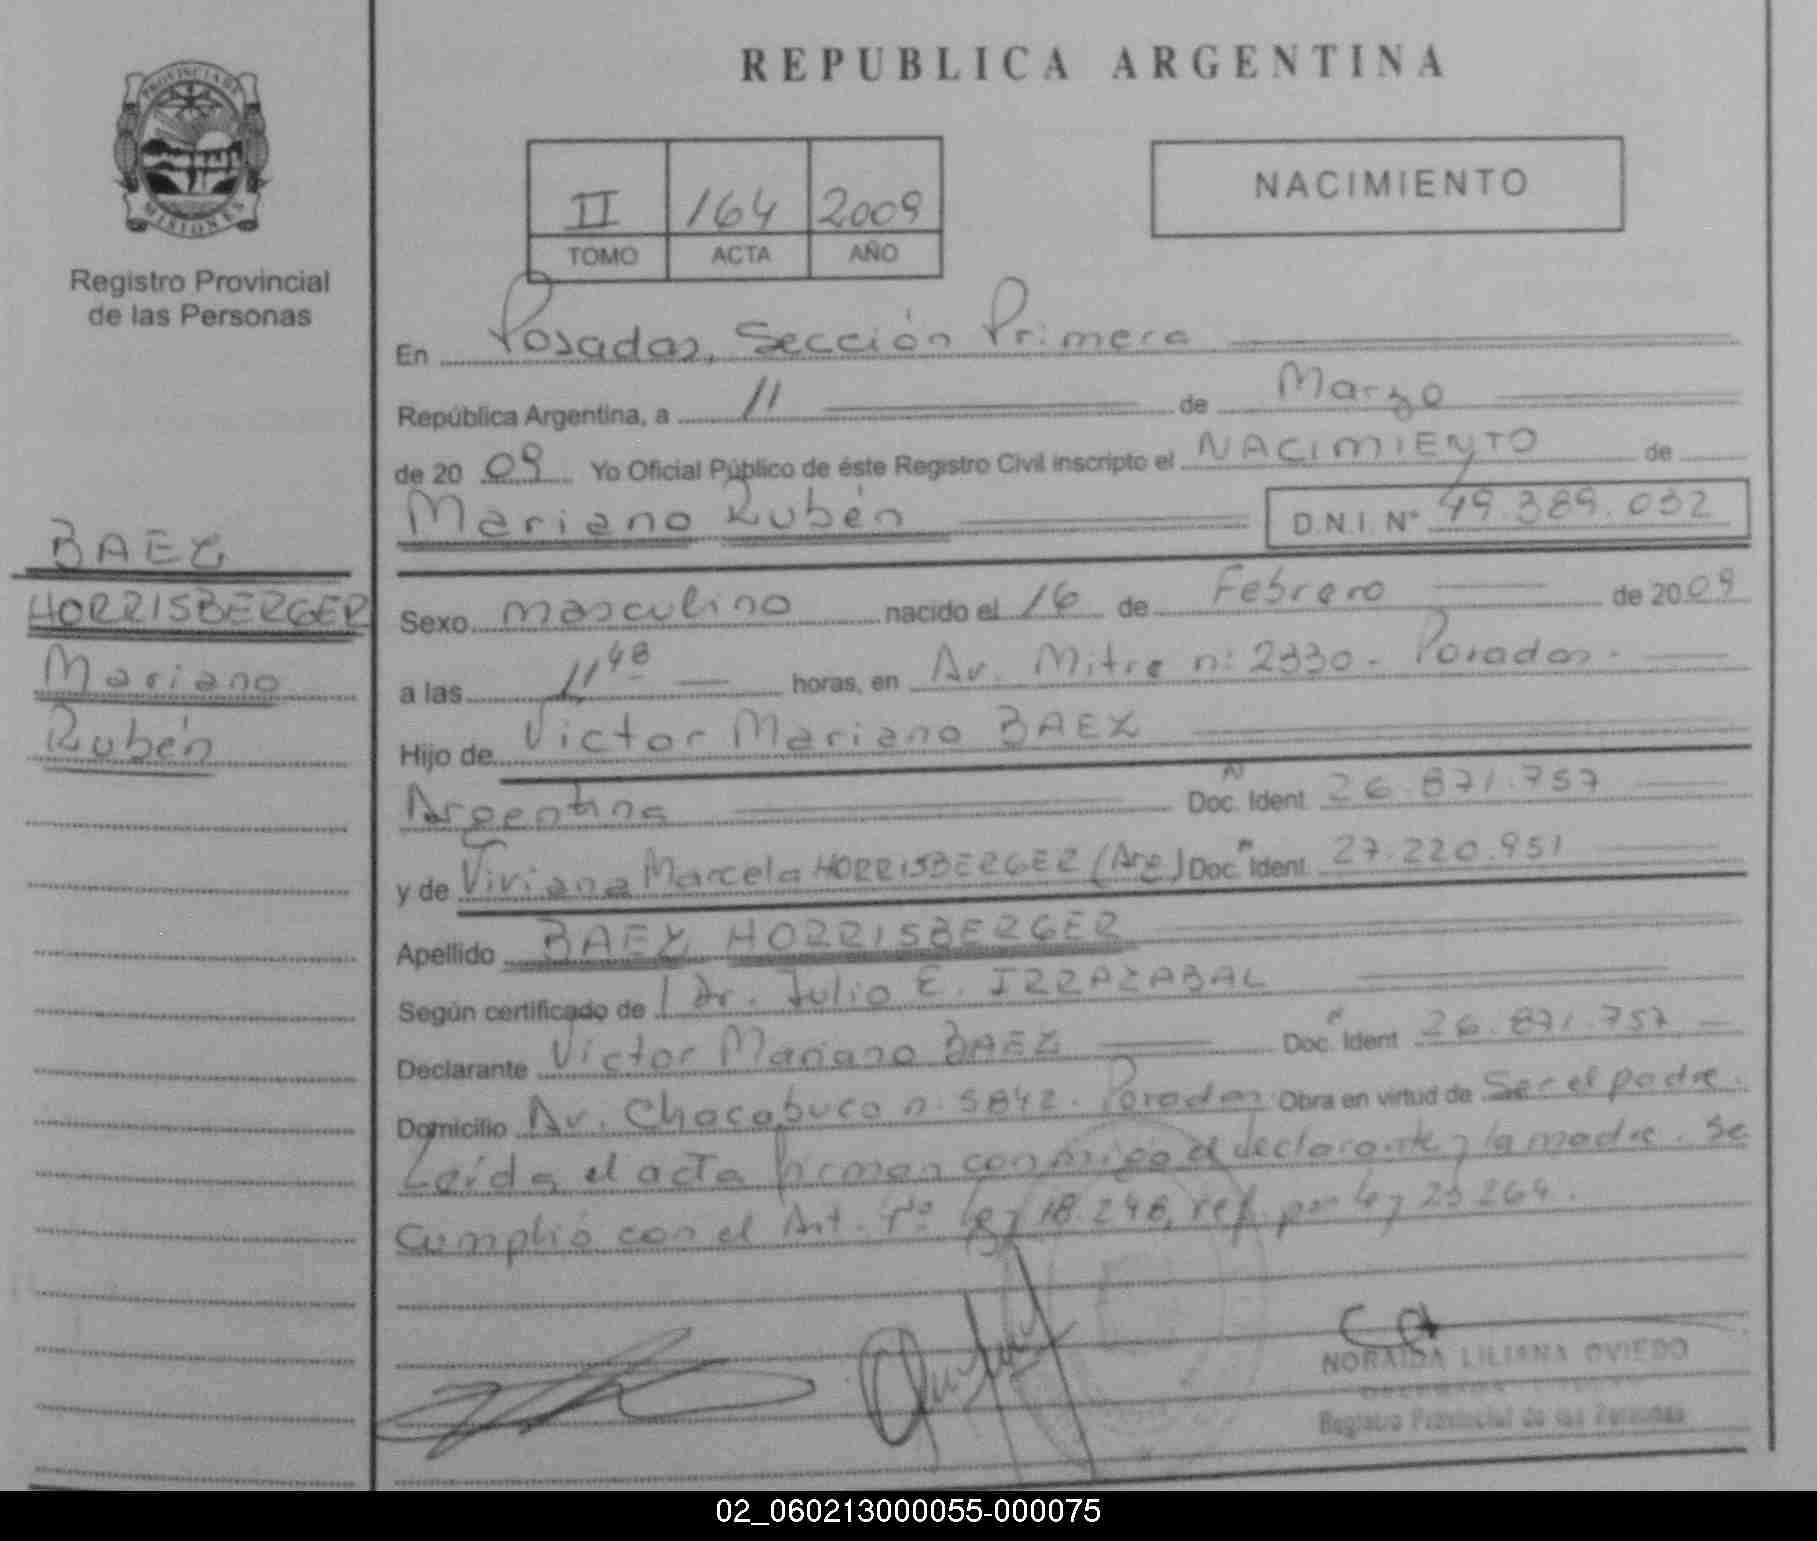 PROVINCIA DE
MISIONES
Registro Provincial
de las Personas
BAEZ
HORRISBERGER
Mariano
Rubén
REPUBLICA ARGENTINA
II 164 2009
TOMO ACTA AÑO
NACIMIENTO
En Posadas, Sección Primera
República Argentina, a 11 de Marzo
de 2009 Yo Oficial Público de éste Registro Civil inscripto el NACIMIENTO de
Mariano Rubén D.N.I. N° 49.389.032
Sexo masculino nacido el 16 de Febrero de 2009
a las 11 48 horas, en Av. Mitre n: 2330. Posadas.
Hijo de Victor Mariano BAEZ
Argentina Doc. Ident. 26.871.757
y de Viviana Marcela HORRISBERGER (Arg) Doc. Ident. 27.220.951
Apellido BAEZ HORRISBERGER
Según certificado de Dr. Julio E. IRRAZABAL
Declarante Victor Mariano BAEZ Doc. Ident 26.871.757
Domicilio Av. Chacabuco n. 5842. Posadas Obra en virtud de Ser el padre.
Leída el acta firman conmigo el declarante y la madre. Se
cumplió con el Art. 4° ley 18.248, ref. por ley 23264.
NORAIDA LILIANA OVIEDO
Registro Provincial de las Personas
02_060213000055-000075